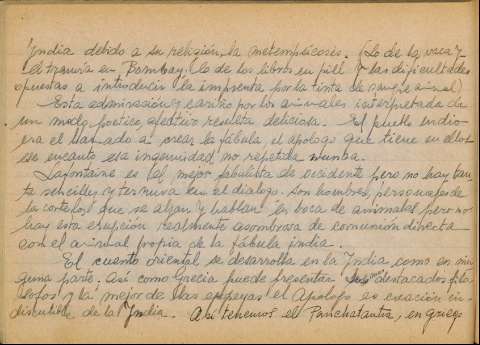 India debido a su religión, la metempsicosis. (Lo de la vaca y
el tranvía en Bombay, lo de los libros en piel y las dificultades
opuestas a introducir la imprenta por la tinta de sangre animal)
Esta admiración y cariño por los animales interpretada de
un modo poético, afectivo resulta deliciosa. El pueblo indio
era el llamado a crear la fábula, el apólogo que tiene en ellos
ese encanto esa ingenuidad no repetida nunca.
Lafontaine es el mejor fabulista de occidente pero no hay tan
ta sencillez y ternura en el diálogo. Son hombres, personajes de
la corte que se alzan y hablan en boca de animales pero no
hay esta erupción realmente asombrosa de comunión directa
con el animal propia de la fábula india.
El cuento oriental se desarrolla en la India como en nin
guna parte. Así como Grecia puede presentar destacados filó
sofos y la mejor de las epopeyas el Apólogo es creación in
discutible de la India. Así tenemos el Panchatantra, en griego